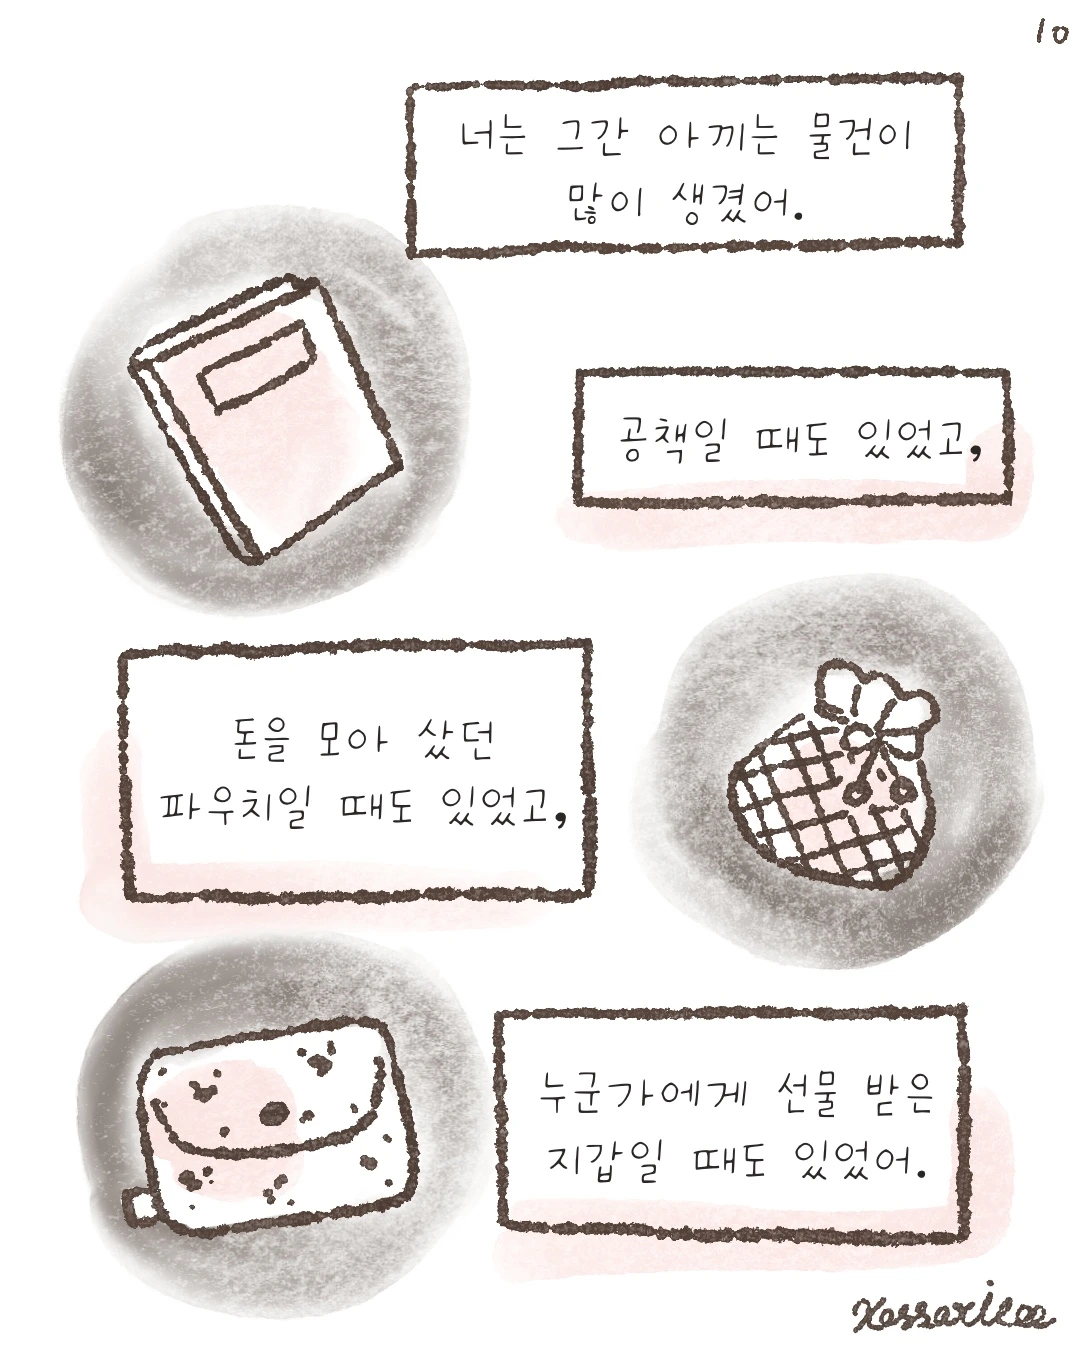 10
너는 그간 아끼는 물건이
많이 생겼어.
공책일 때도 있었고,
돈을 모아 샀던
파우치일 때도 있었고,
누군가에게 선물 받은
지갑일 때도 있었어.